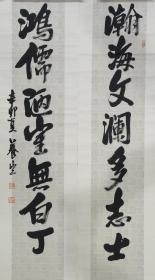 瀚海文澜多志士
鸿儒陋室無白丁
辛卯夏